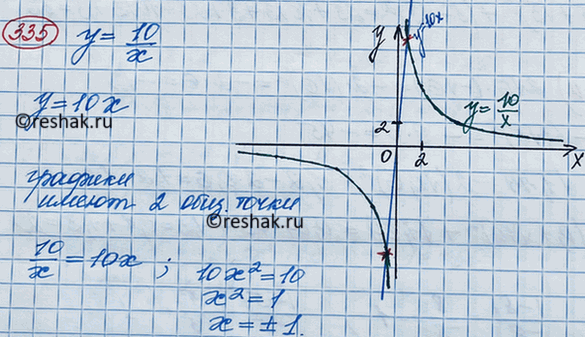 335
y = 10/x
y = 10x
©reshak.ru
графики
имеют 2 общ. точки
©reshak.ru
10/x = 10x ;
10x² = 10
x² = 1
x = ± 1.
y
y=10x
y = 10/x
©reshak.ru
2
0
2
x